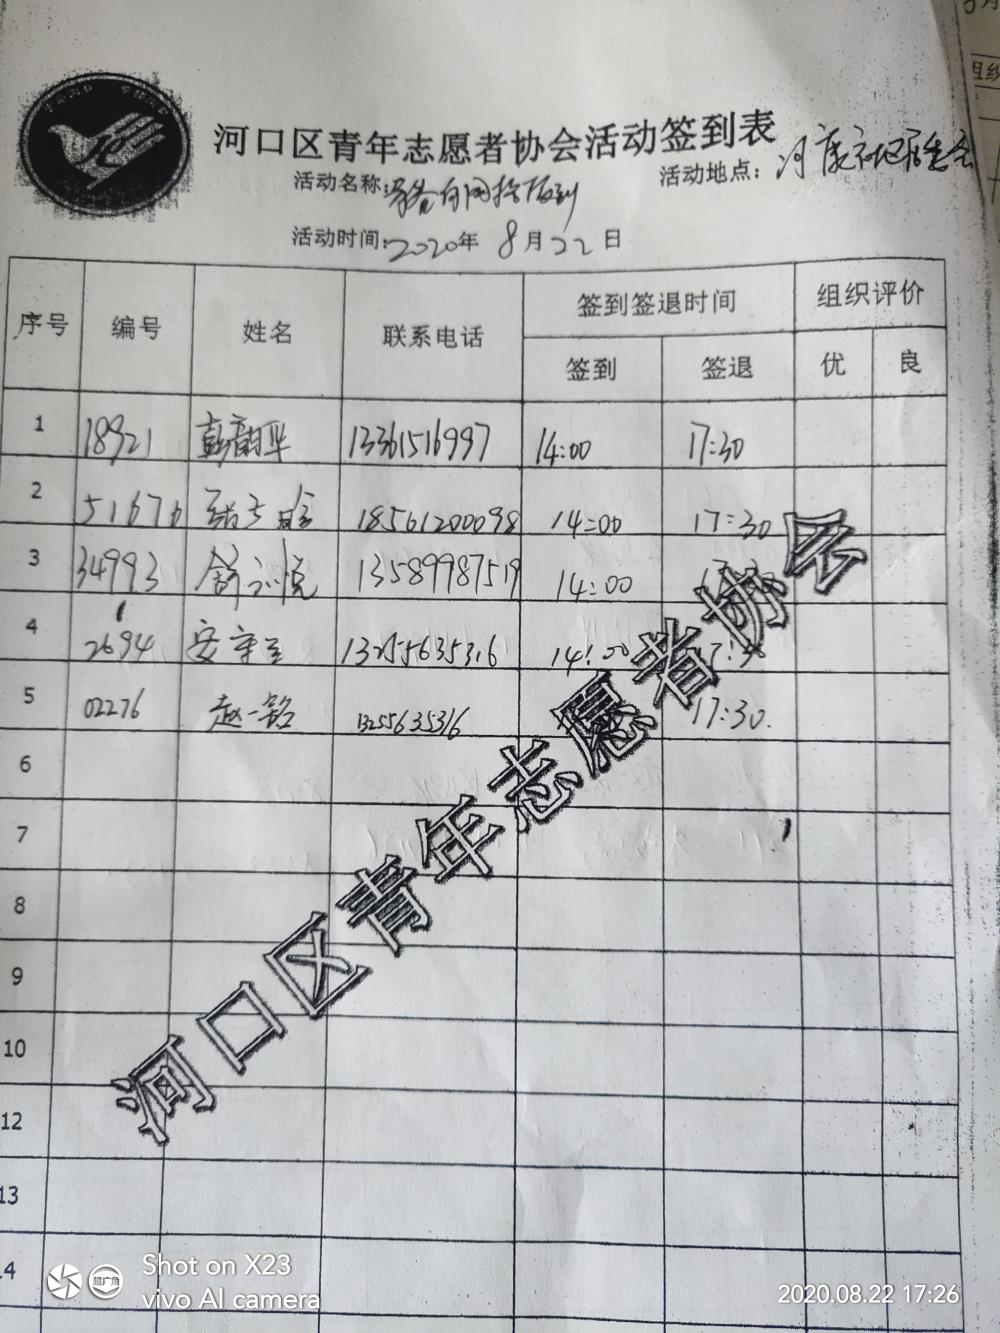 河口区青年志愿者协会活动签到表
活动名称:
活动地点: 河康社区居委会
活动时间:2020年 8月22日
序号 编号 姓名 联系电话 签到签退时间 组织评价
签到 签退 优 良
1 18921 彭韵华 13361516997 14:00 17:30
2 51676 18561200098 14:00 17:30
3 34993 舒 悦 13589987519 14:00
4 2694 安 13255635316 14:00
5 02276 赵一铭 13255635316 17:30.
6
7
8
9
10
12
13
14
河口区青年志愿者协会
Shot on X23
vivo AI camera
超广角
2020.08.22 17:26